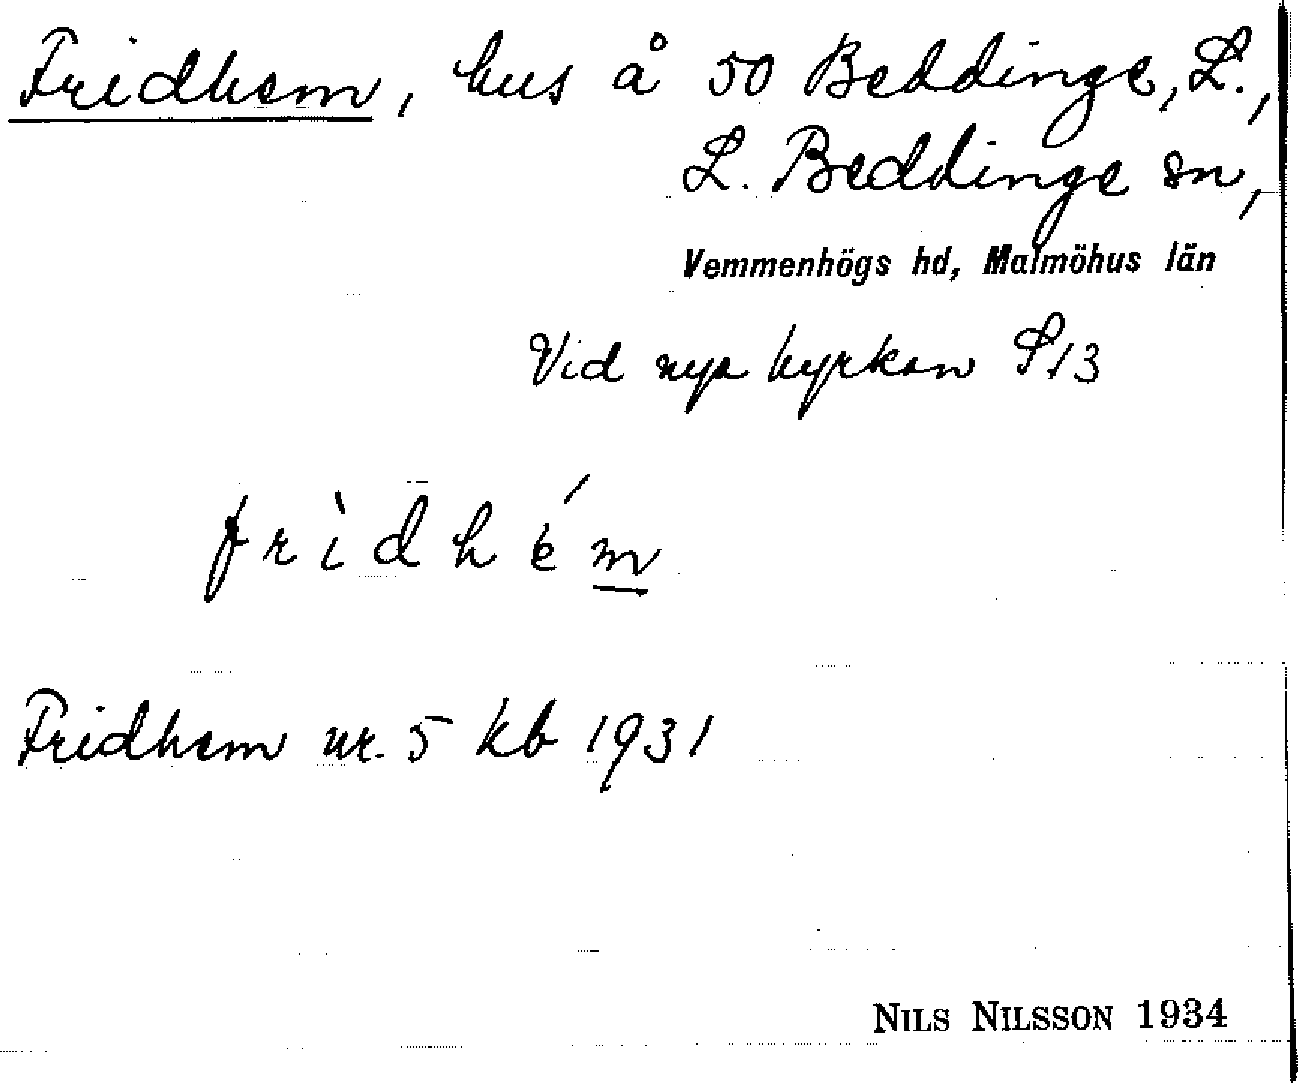 Fridhem, hus å 50 Beddinge, L.,
L. Beddinge sn,
Vemmenhögs hd, Malmöhus län
Vid nya kyrkan S13
frìdhém
Fridhem nr. 5 kb 1931
NILS NILSSON 1934